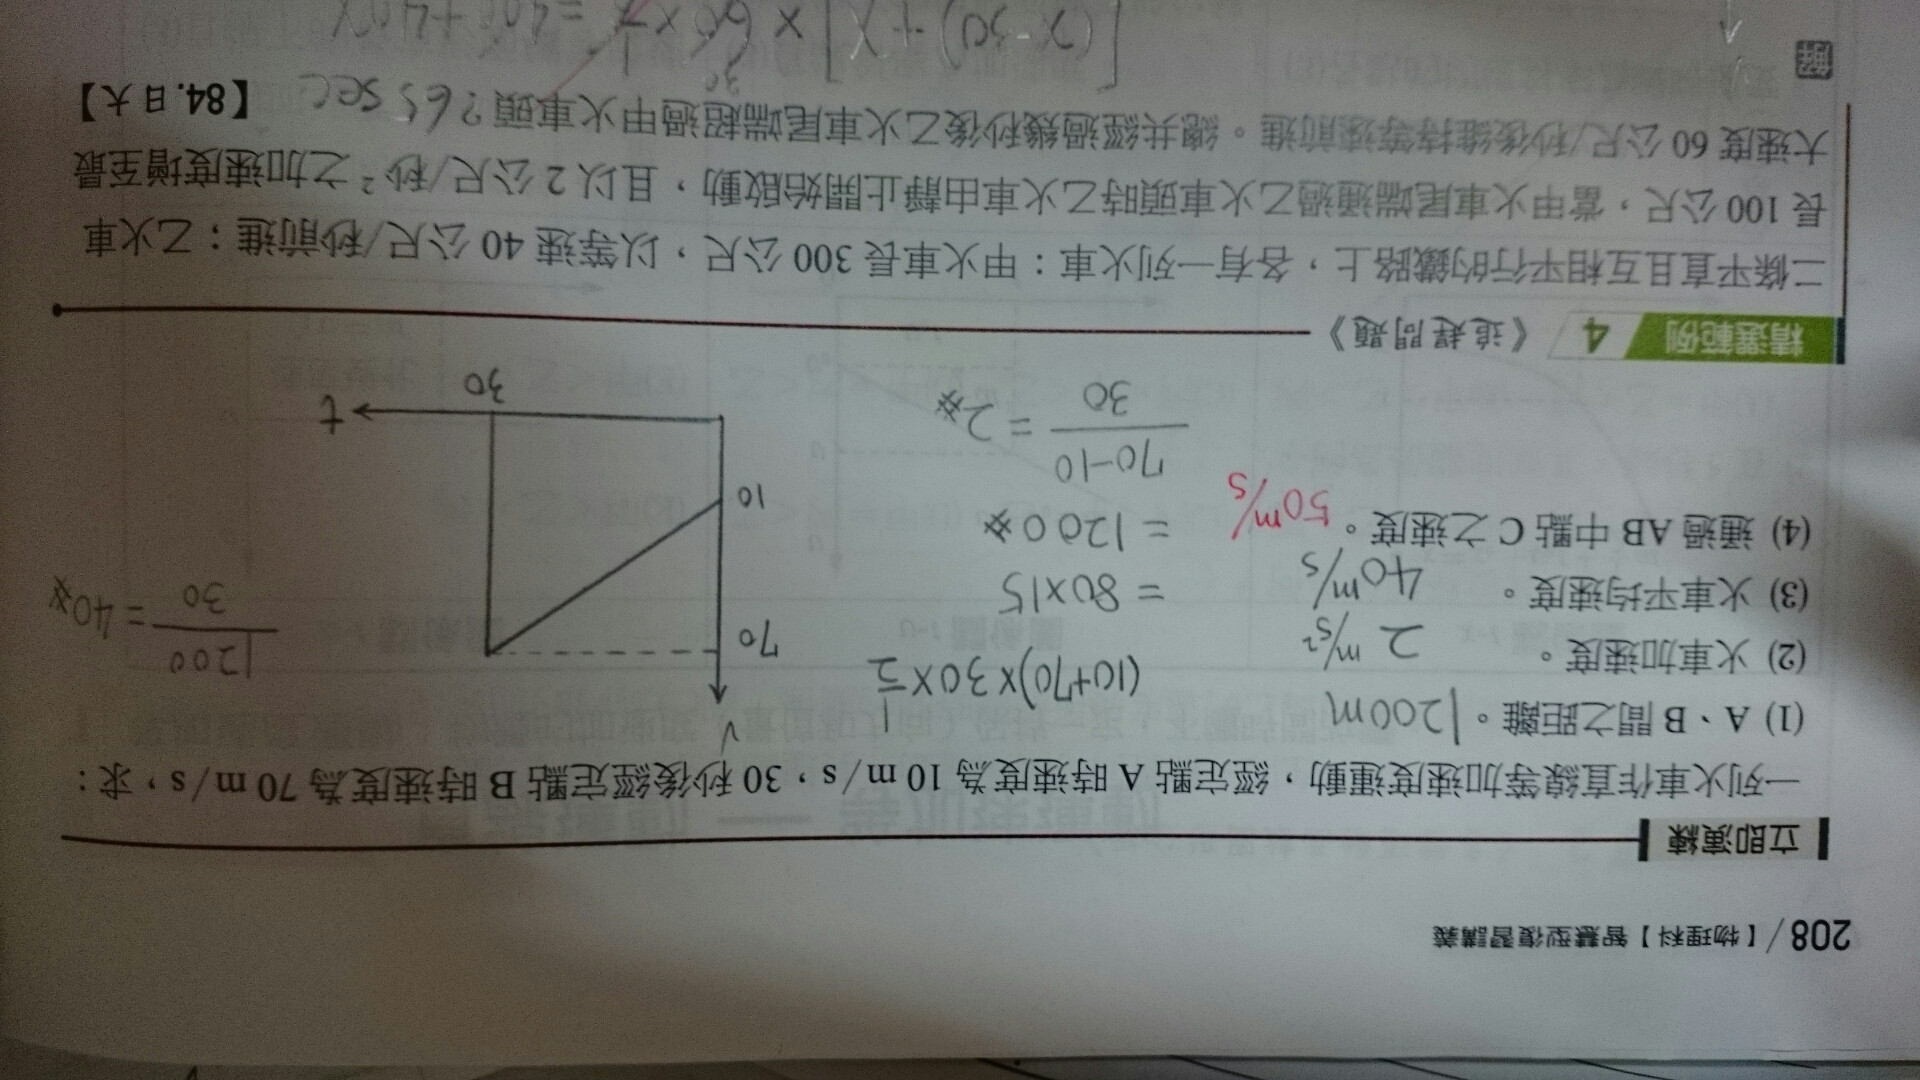 208 /【物理科】智慧型復習講義
立即演練
一列火車作直線等加速度運動，經定點 A 時速度為 10 m/s，30 秒後經定點 B 時速度為 70 m/s，求：
(1) A、B 間之距離。1200m
(2) 火車加速度。 2 m/s²
(3) 火車平均速度。 40 m/s
(4) 通過 AB 中點 C 之速度。 50 m/s
(10+70)×30×1/2
= 80×15
= 1200
70-10/30 = 2
v
70
10
30
t
1200/30 = 40
精選範例 4 《追趕問題》
二條平直且互相平行的鐵路上，各有一列火車：甲火車長 300 公尺，以等速 40 公尺/秒前進；乙火車
長 100 公尺，當甲火車尾端通過乙火車頭時乙火車由靜止開始啟動，且以 2 公尺/秒² 之加速度增至最
大速度 60 公尺/秒後維持等速前進。總共經過幾秒後乙火車尾端超過甲火車頭？65 sec 【84.日大】
解
[(x-30)+x]×60×1/2 = 400+40x